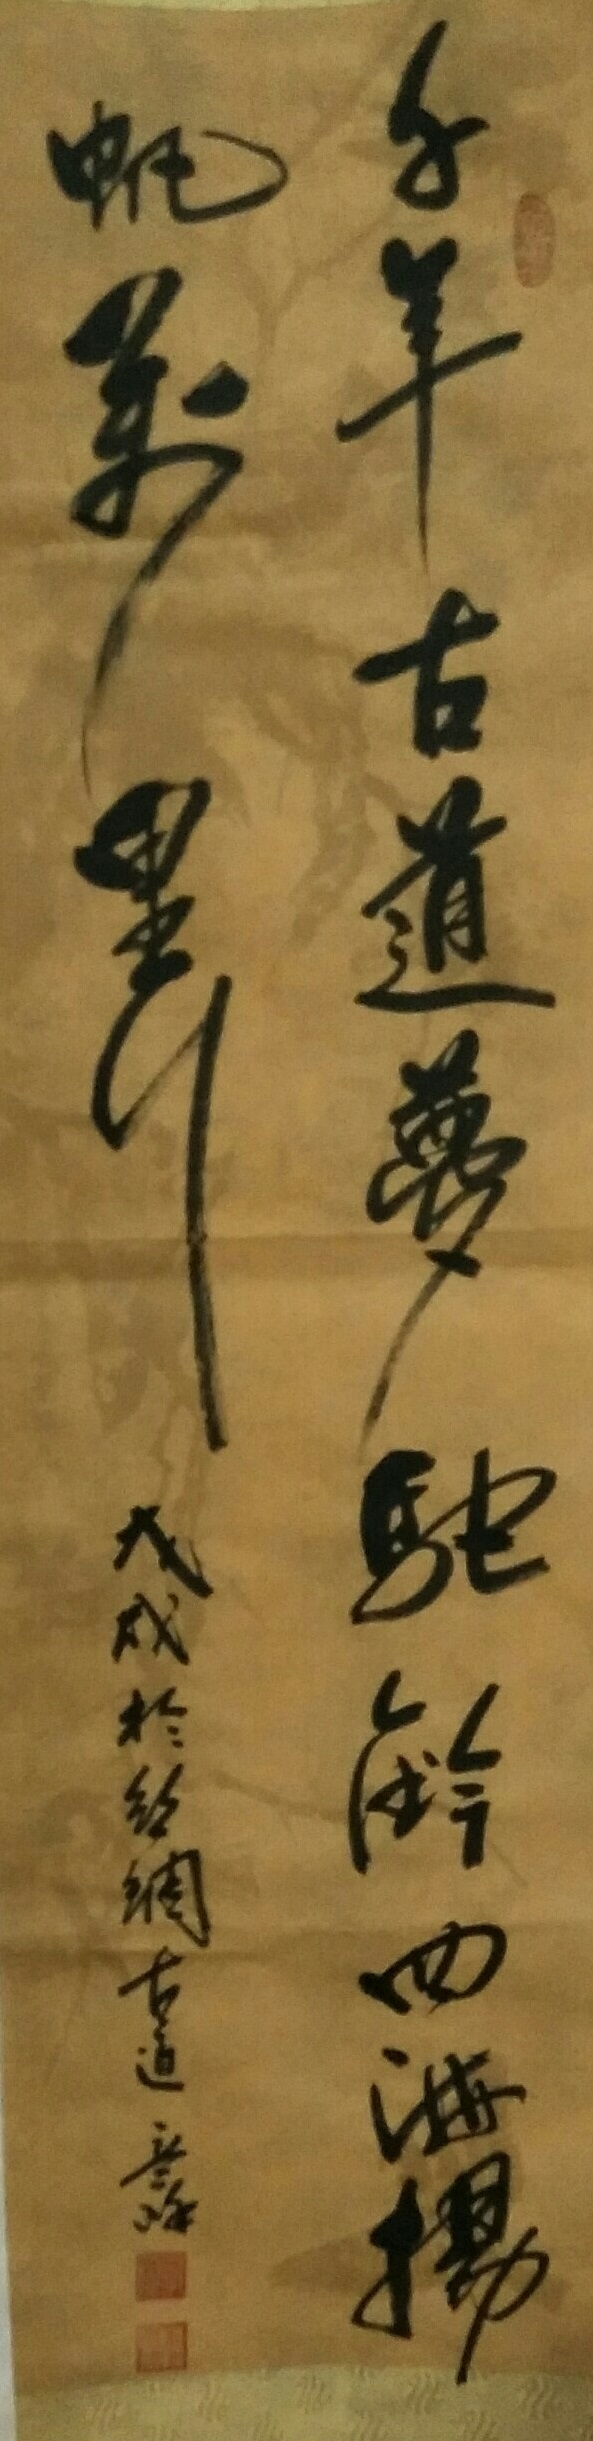 千年古道夢駝鈴四海揚
帆萬里行
戊戌於絲綢古道